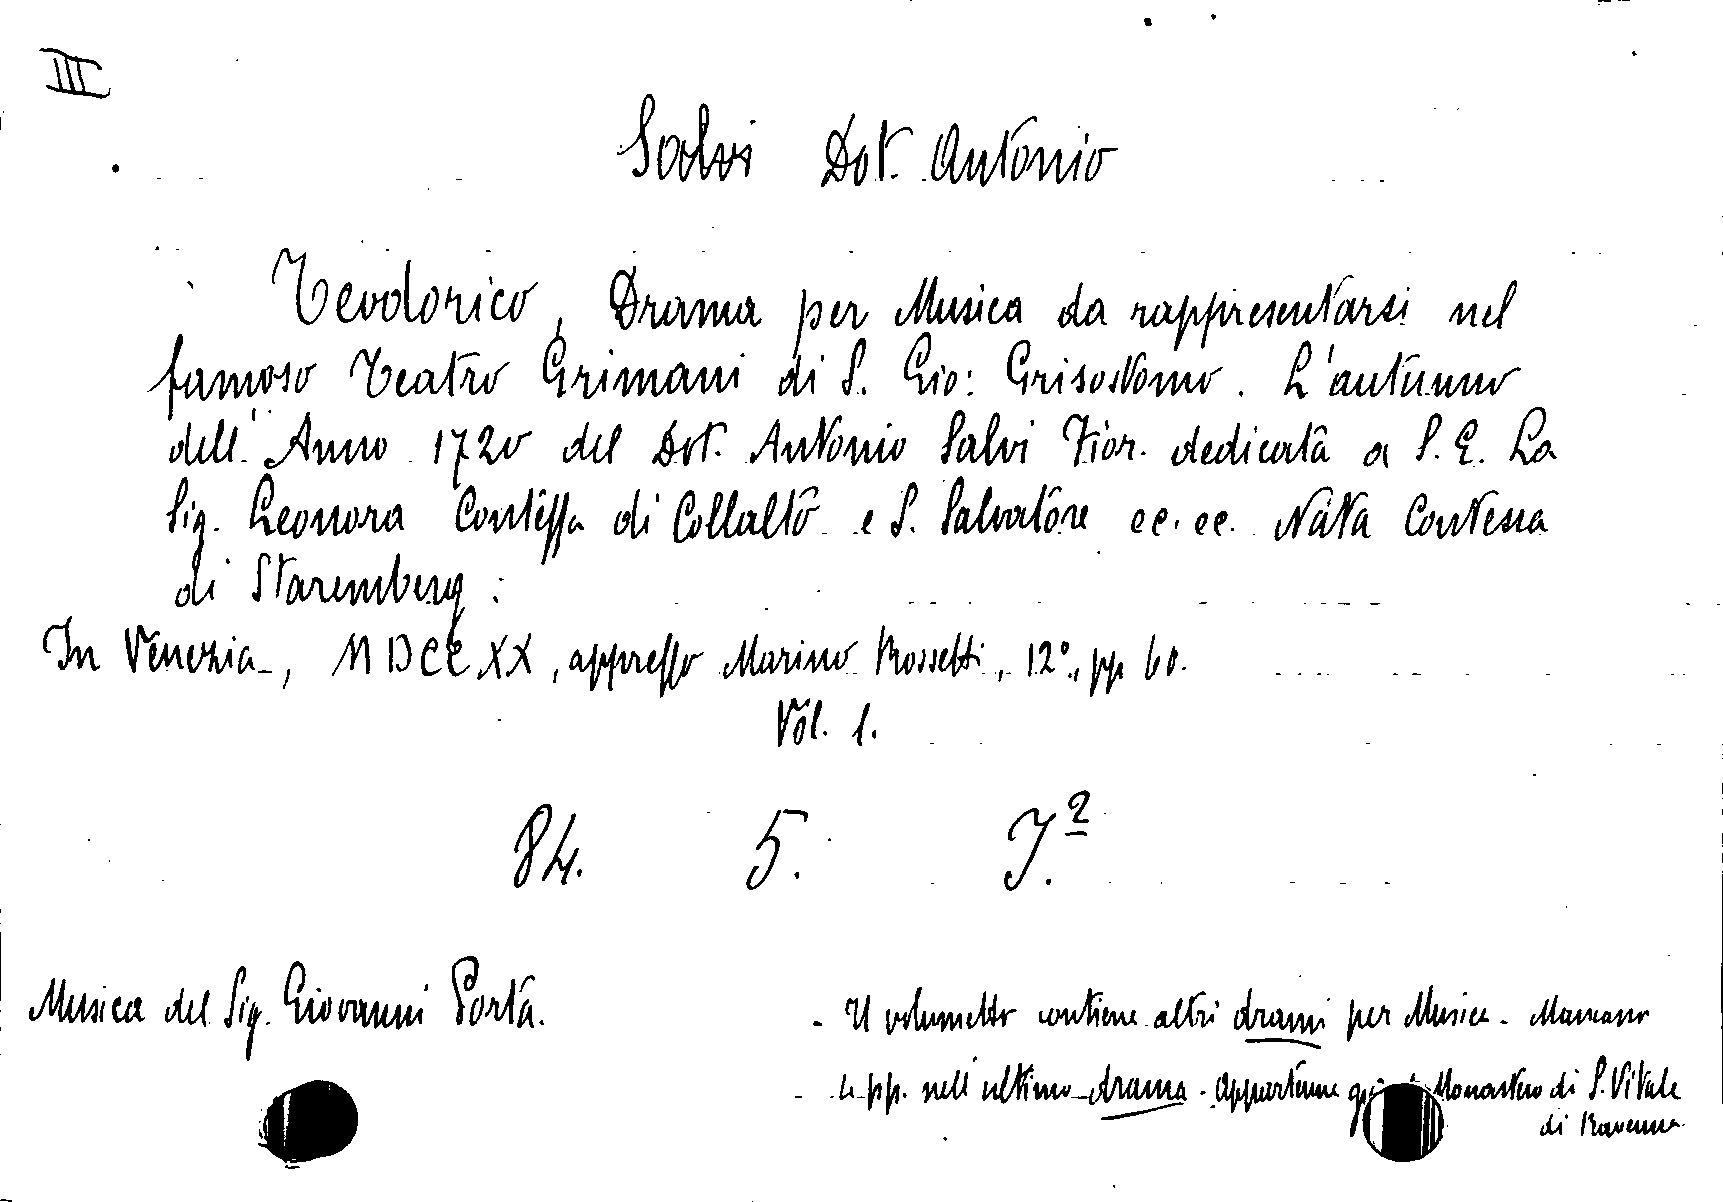 III
Salvi Dot. Antonio
Teodorico, Drama per Musica da rappresentarsi nel
famoso Teatro Grimani di S. Gio: Grisostomo. L'autunno
dell' Anno 1720 del Dot. Antonio Salvi Fior. dedicata a S. E. La
Sig. Leonora Contessa di Collalto e S. Salvatore ec. ec. Nata Contessa
di Staremberg:
In Venezia, MDCCXX, appresso Marino Rossetti, 12°, pp 60.
Vol. 1.
84. 5. J.2
Musica del Sig. Giovanni Porta.
- Il volumetto contiene altri drami per Musica - Mancano
- 4 pp. nell'ultimo drama - Appartenne Monastero di S. Vitale
di Ravenna